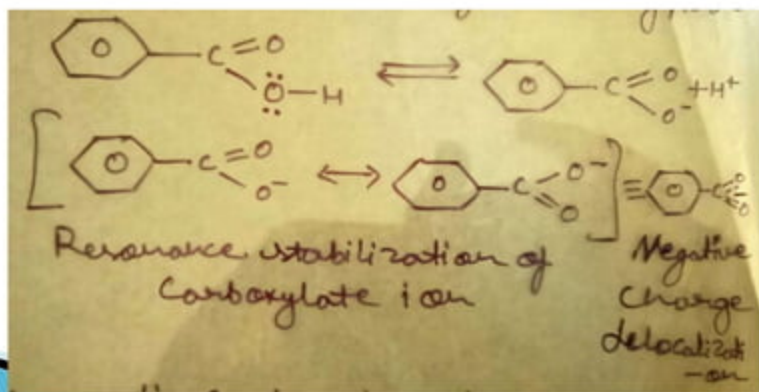 C=O
Ö-H
C=O
O⁻
+H⁺
C=O
O⁻
C-O⁻
O
C
O
O
Resonance stabilization of
Carboxylate ion
Negative
Charge
delocalizati
-on